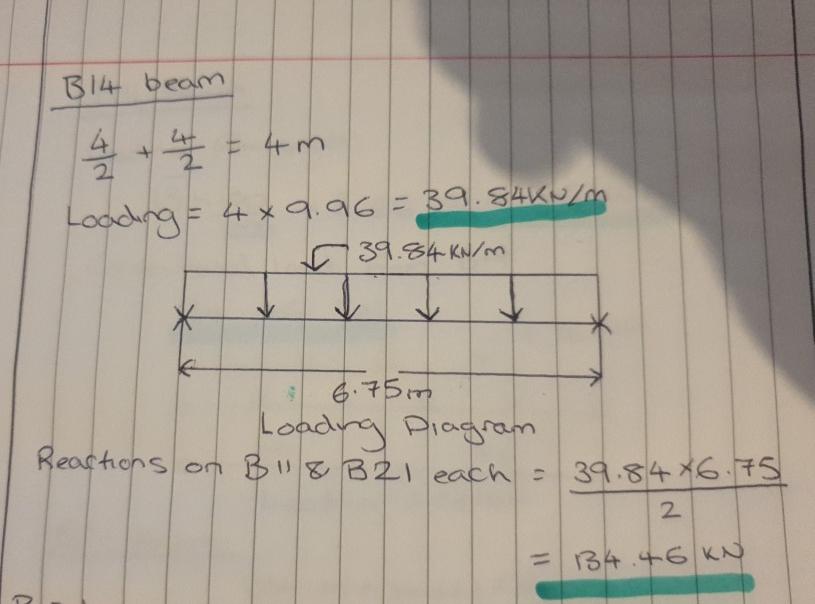 B14 beam
4/2 + 4/2 = 4m
Loading = 4 × 9.96 = 39.84KN/m
39.84KN/m
6.75m
Loading Diagram
Reactions on B11 & B21 each = 39.84×6.75/2
= 134.46 KN